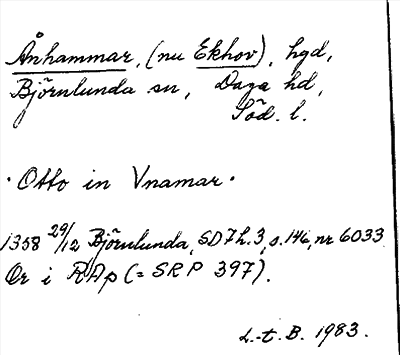 Ånhammar, (nu Ekhov), hgd,
Björnlunda sn, Daga hd,
Söd. l.
· Otto in Vnamar ·
1358 29/12 Björnlunda, SD 7 h. 3, s. 146, nr 6033.
Or i RAp (= SRP 397).
L.-t. B. 1983.